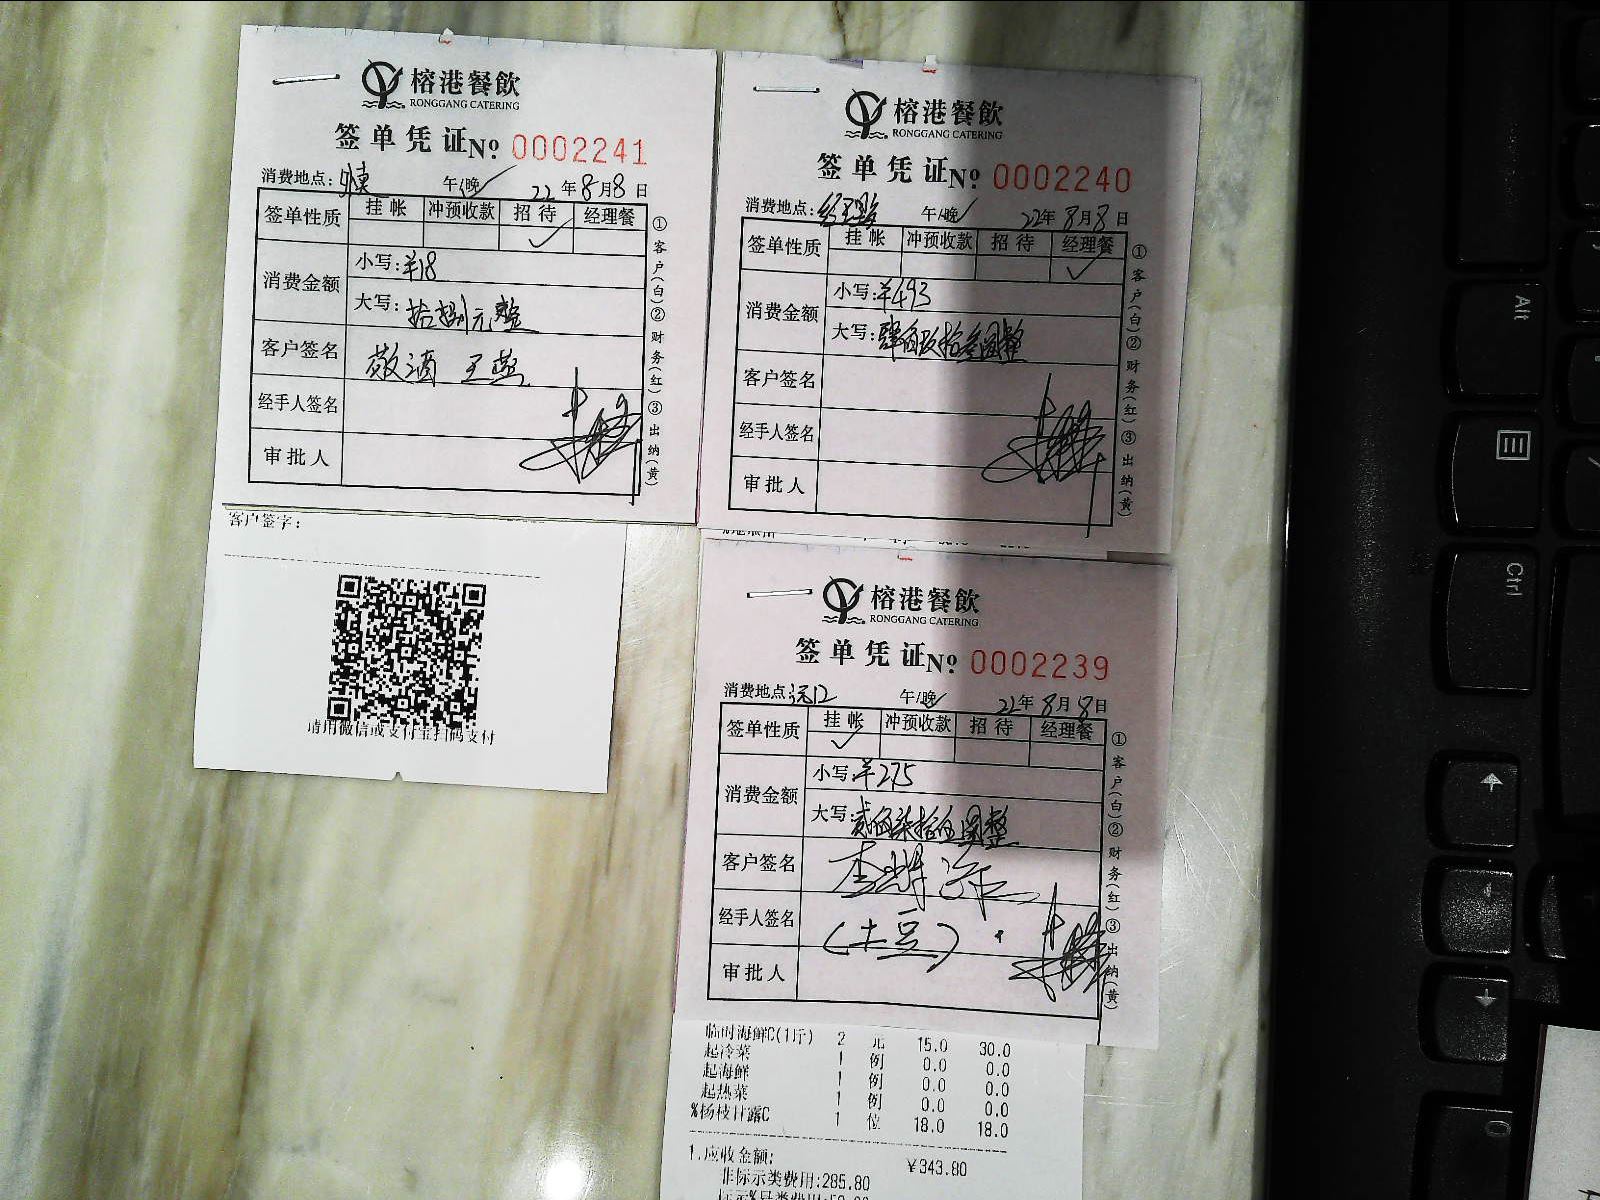 榕港餐飲
RONGGANG CATERING
签单凭证№ 0002241
消费地点: 午/晚✓ 22年8月8日
签单性质 挂帐 冲预收款 招待 经理餐
✓
消费金额 小写:¥18
大写:拾捌元整
客户签名 敬酒 王燕
经手人签名
审批人
①客户(白)②财务(红)③出纳(黄)
客户签字:
请用微信或支付宝扫码支付
榕港餐飲
RONGGANG CATERING
签单凭证№ 0002240
消费地点: 午/晚✓ 22年8月8日
签单性质 挂帐 冲预收款 招待 经理餐
✓
消费金额 小写:¥493
大写:肆佰玖拾叁圆整
客户签名
经手人签名
审批人
①客户(白)②财务(红)③出纳(黄)
榕港餐飲
RONGGANG CATERING
签单凭证№ 0002239
消费地点 午/晚✓ 22年8月8日
签单性质 挂帐 冲预收款 招待 经理餐
✓
消费金额 小写:¥275
大写:贰佰柒拾伍圆整
客户签名
经手人签名 (土豆)
审批人
①客户(白)②财务(红)③出纳(黄)
临时海鲜C(1斤) 2 元 15.0 30.0
起冷菜 1 例 0.0 0.0
起海鲜 1 例 0.0 0.0
起热菜 1 例 0.0 0.0
%杨枝甘露C 1 位 18.0 18.0
1.应收金额: ¥343.80
非标示类费用:285.80
Alt
Ctrl